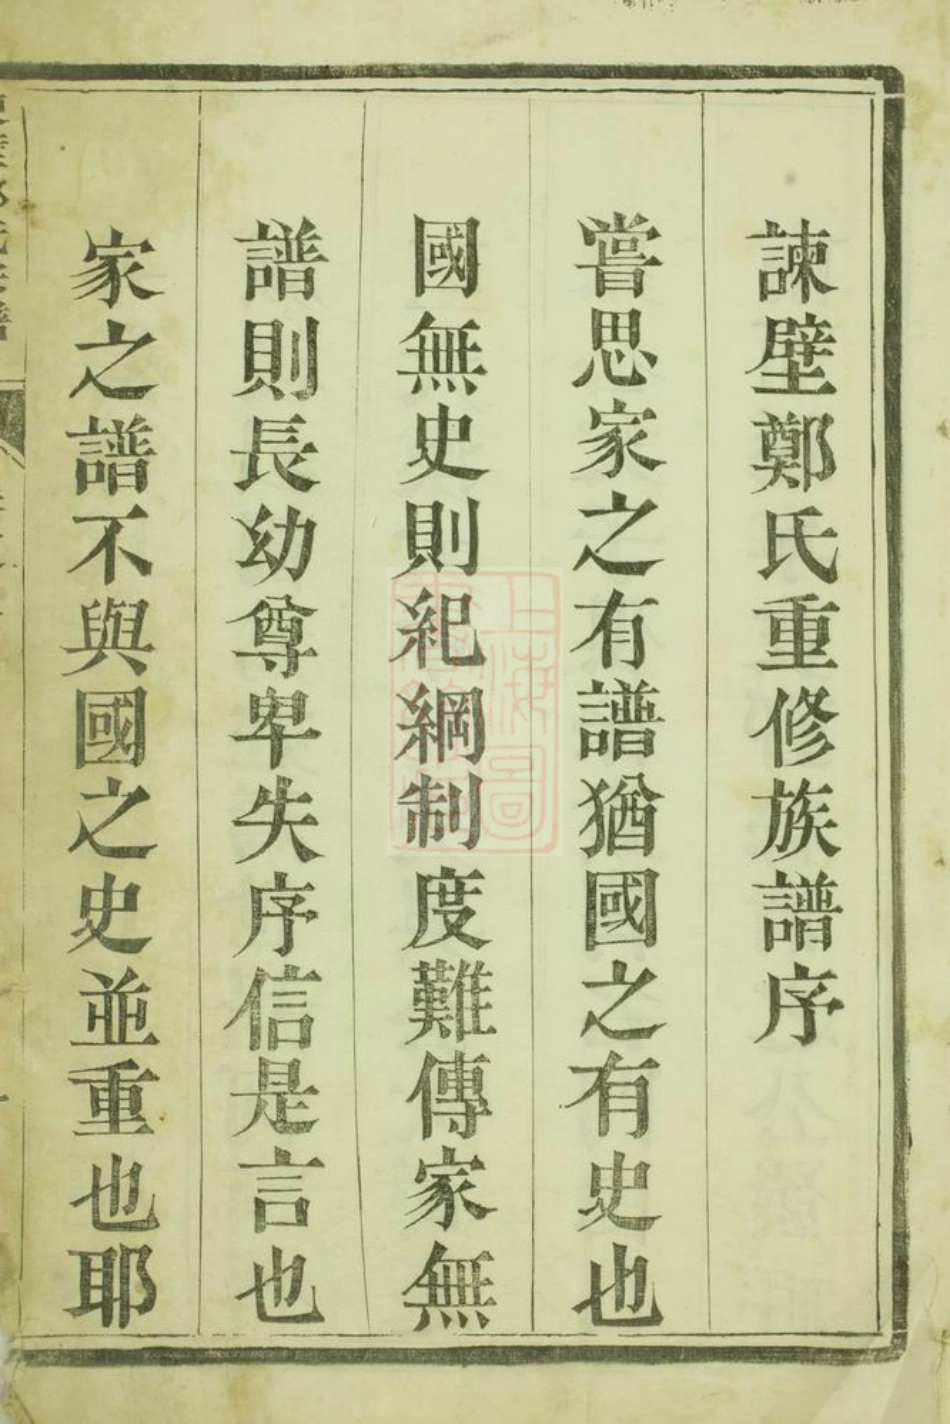 諫壁鄭氏重修族譜序
嘗思家之有譜猶國之有史也
國無史則紀綱制度難傳家無
譜則長幼尊卑失序信是言也
家之譜不與國之史並重也耶